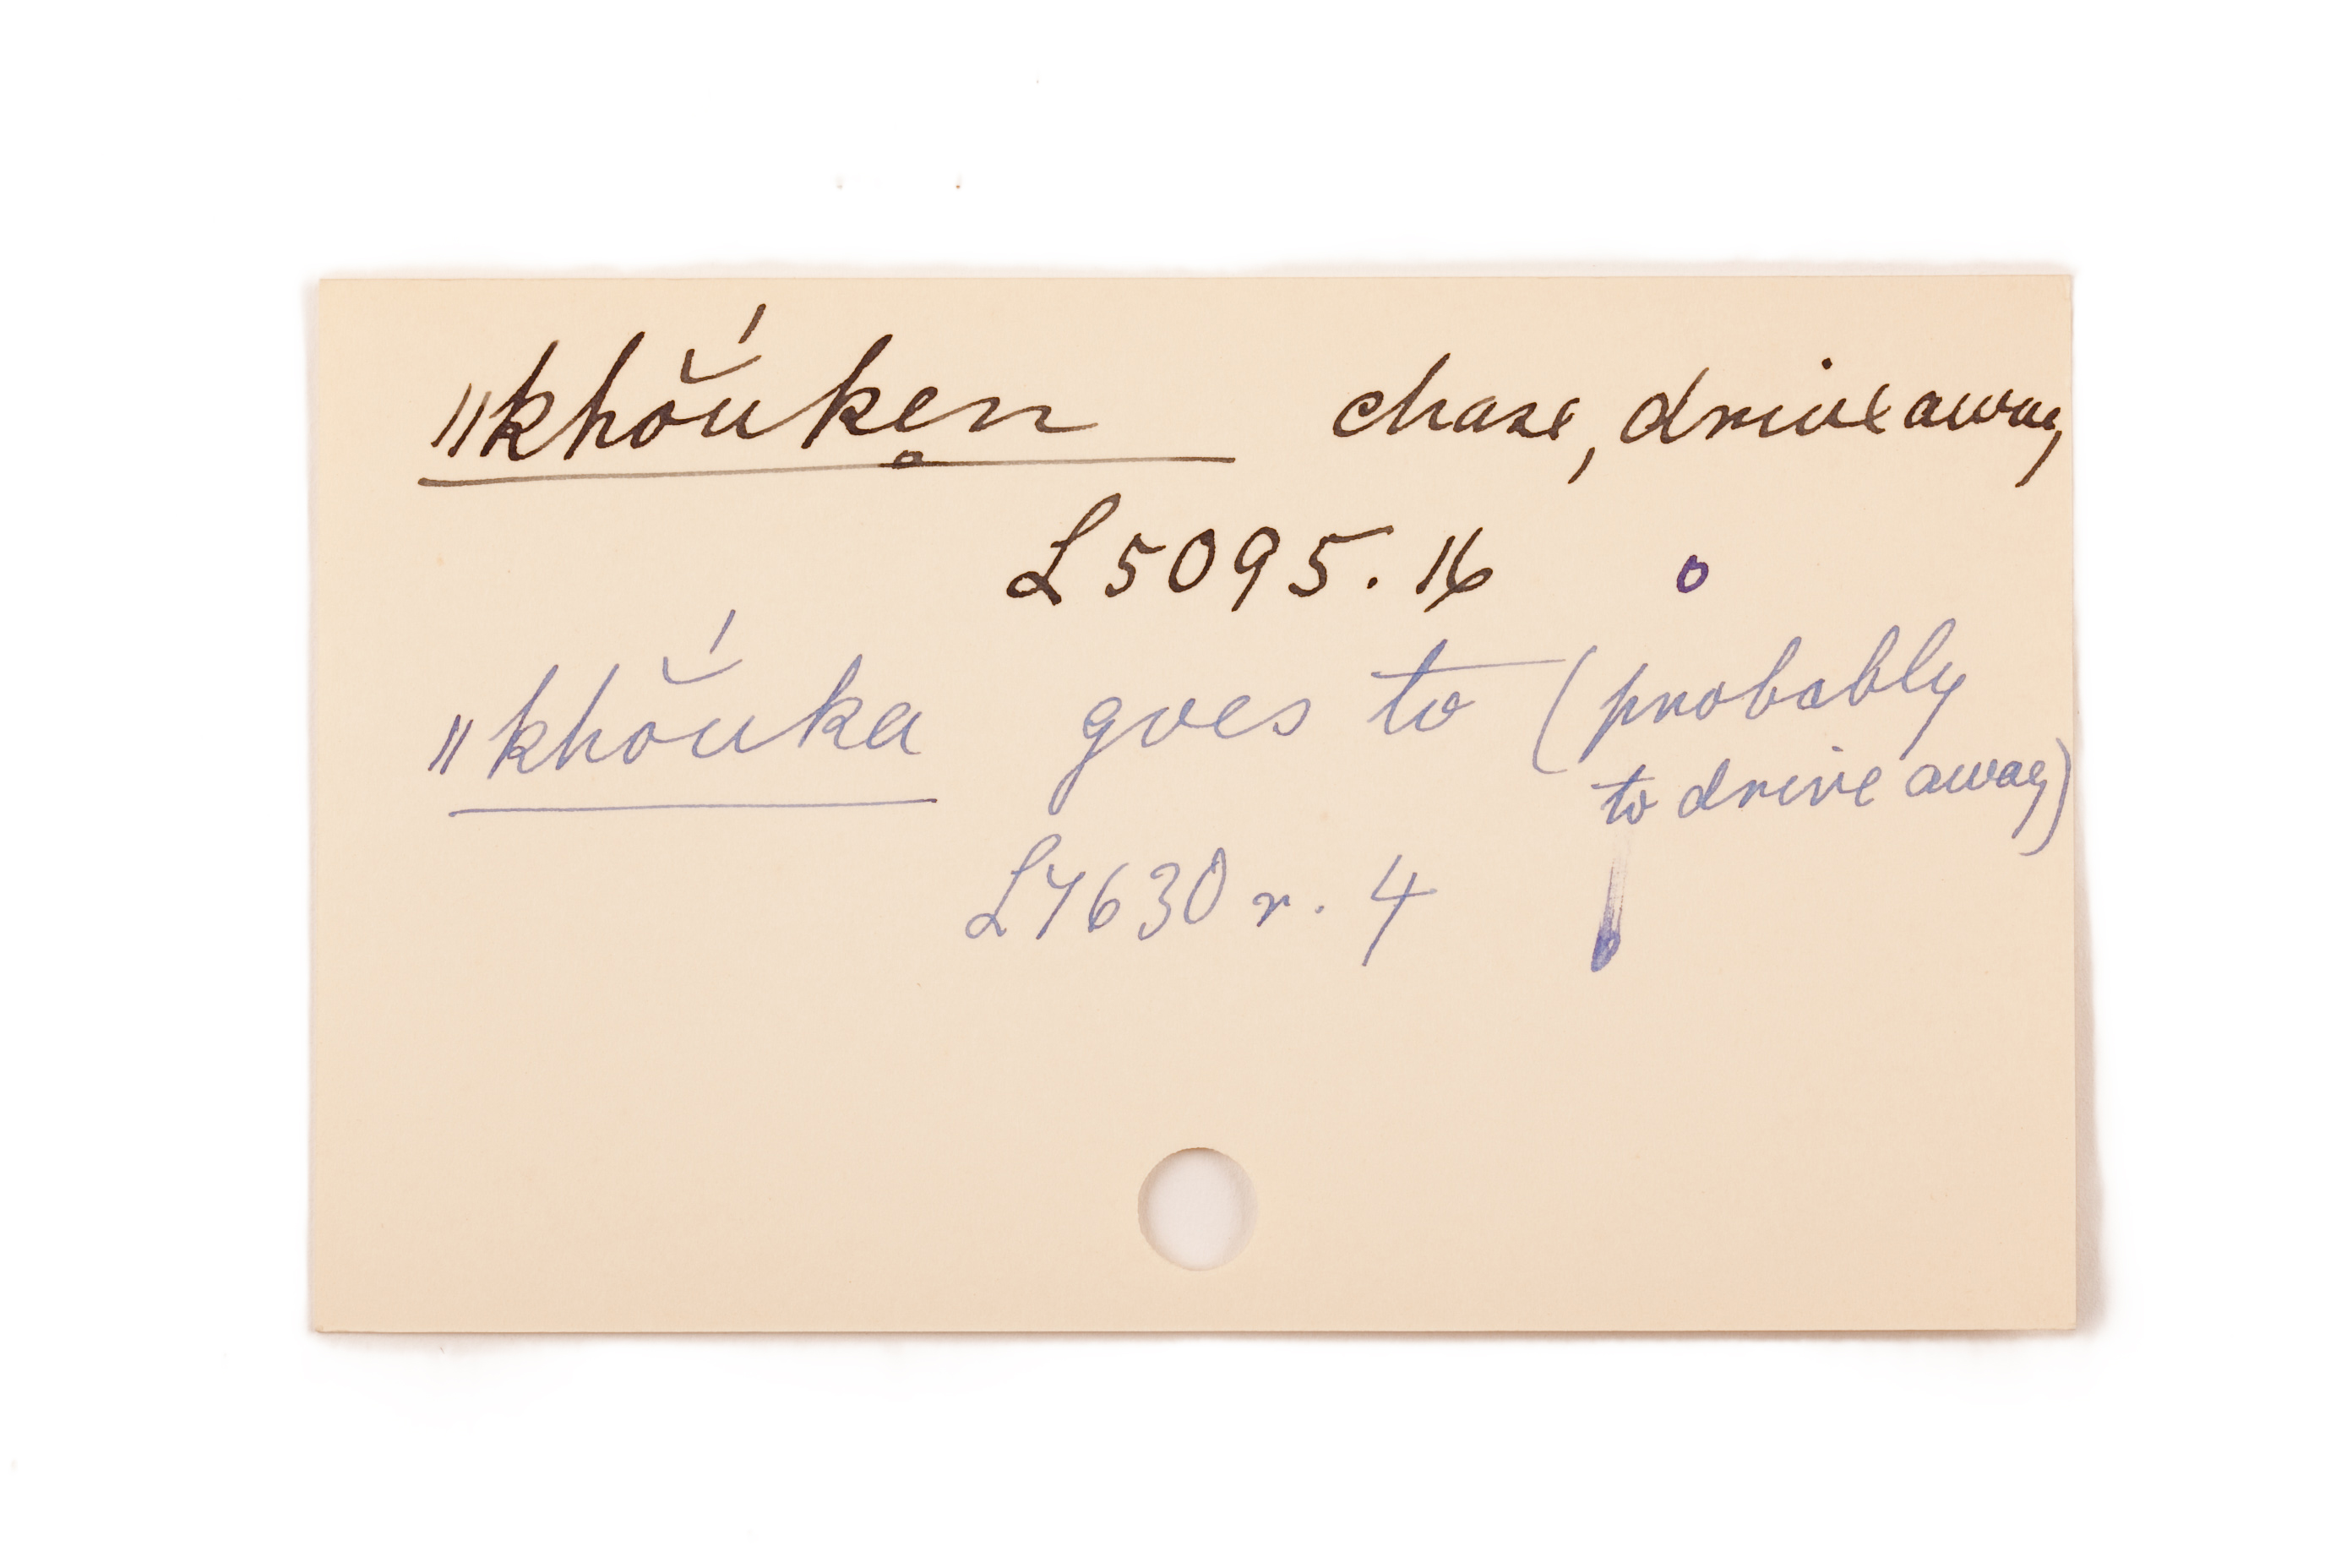 ǁkhŏ́uken̥ chase, drive away,
L5095.16 o
ǁkhŏ́uka goes to (probably
to drive away)
L7630 r. 4